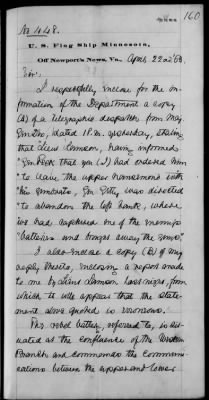 160
No 448.
U. S. Flag Ship Minnesota,
Off Newport's News, Va., April 22nd 63.
Sir:
I respectfully inclose for the in-
formation of the Department a copy
(A) of a telegraphic despatch from Maj.
Gen Dix, dated P.M. yesterday, stating
that "Lieut Lamson, having informed
"Gen Peck that you (I) had ordered him
"to leave the upper Nansemond with
"his gunboats, Gen Getty was directed
"to abandon the left bank, where
"we had captured one of the enemy's
"batteries and brought away the guns."
I also inclose a copy (B) of my
reply thereto, inclosing a report made
to me by Lieut Lamson last night, from
which it will appear that the state-
ment above quoted is erroneous.
The rebel battery, referred to, is sit-
uated at the confluence of the Western
Branch and commands the communi-
cations between the upper and lower